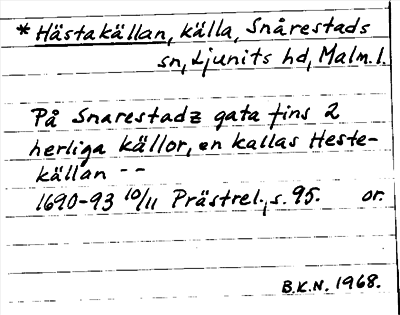 * Hästakällan, källa, Snårestads
sn, Ljunits hd, Malm. l.
På Snarestadz gata fins 2
herliga källor, en kallas Heste-
källan --
1690-93 10/11 Prästrel., s. 95. or.
B.K.N. 1968.